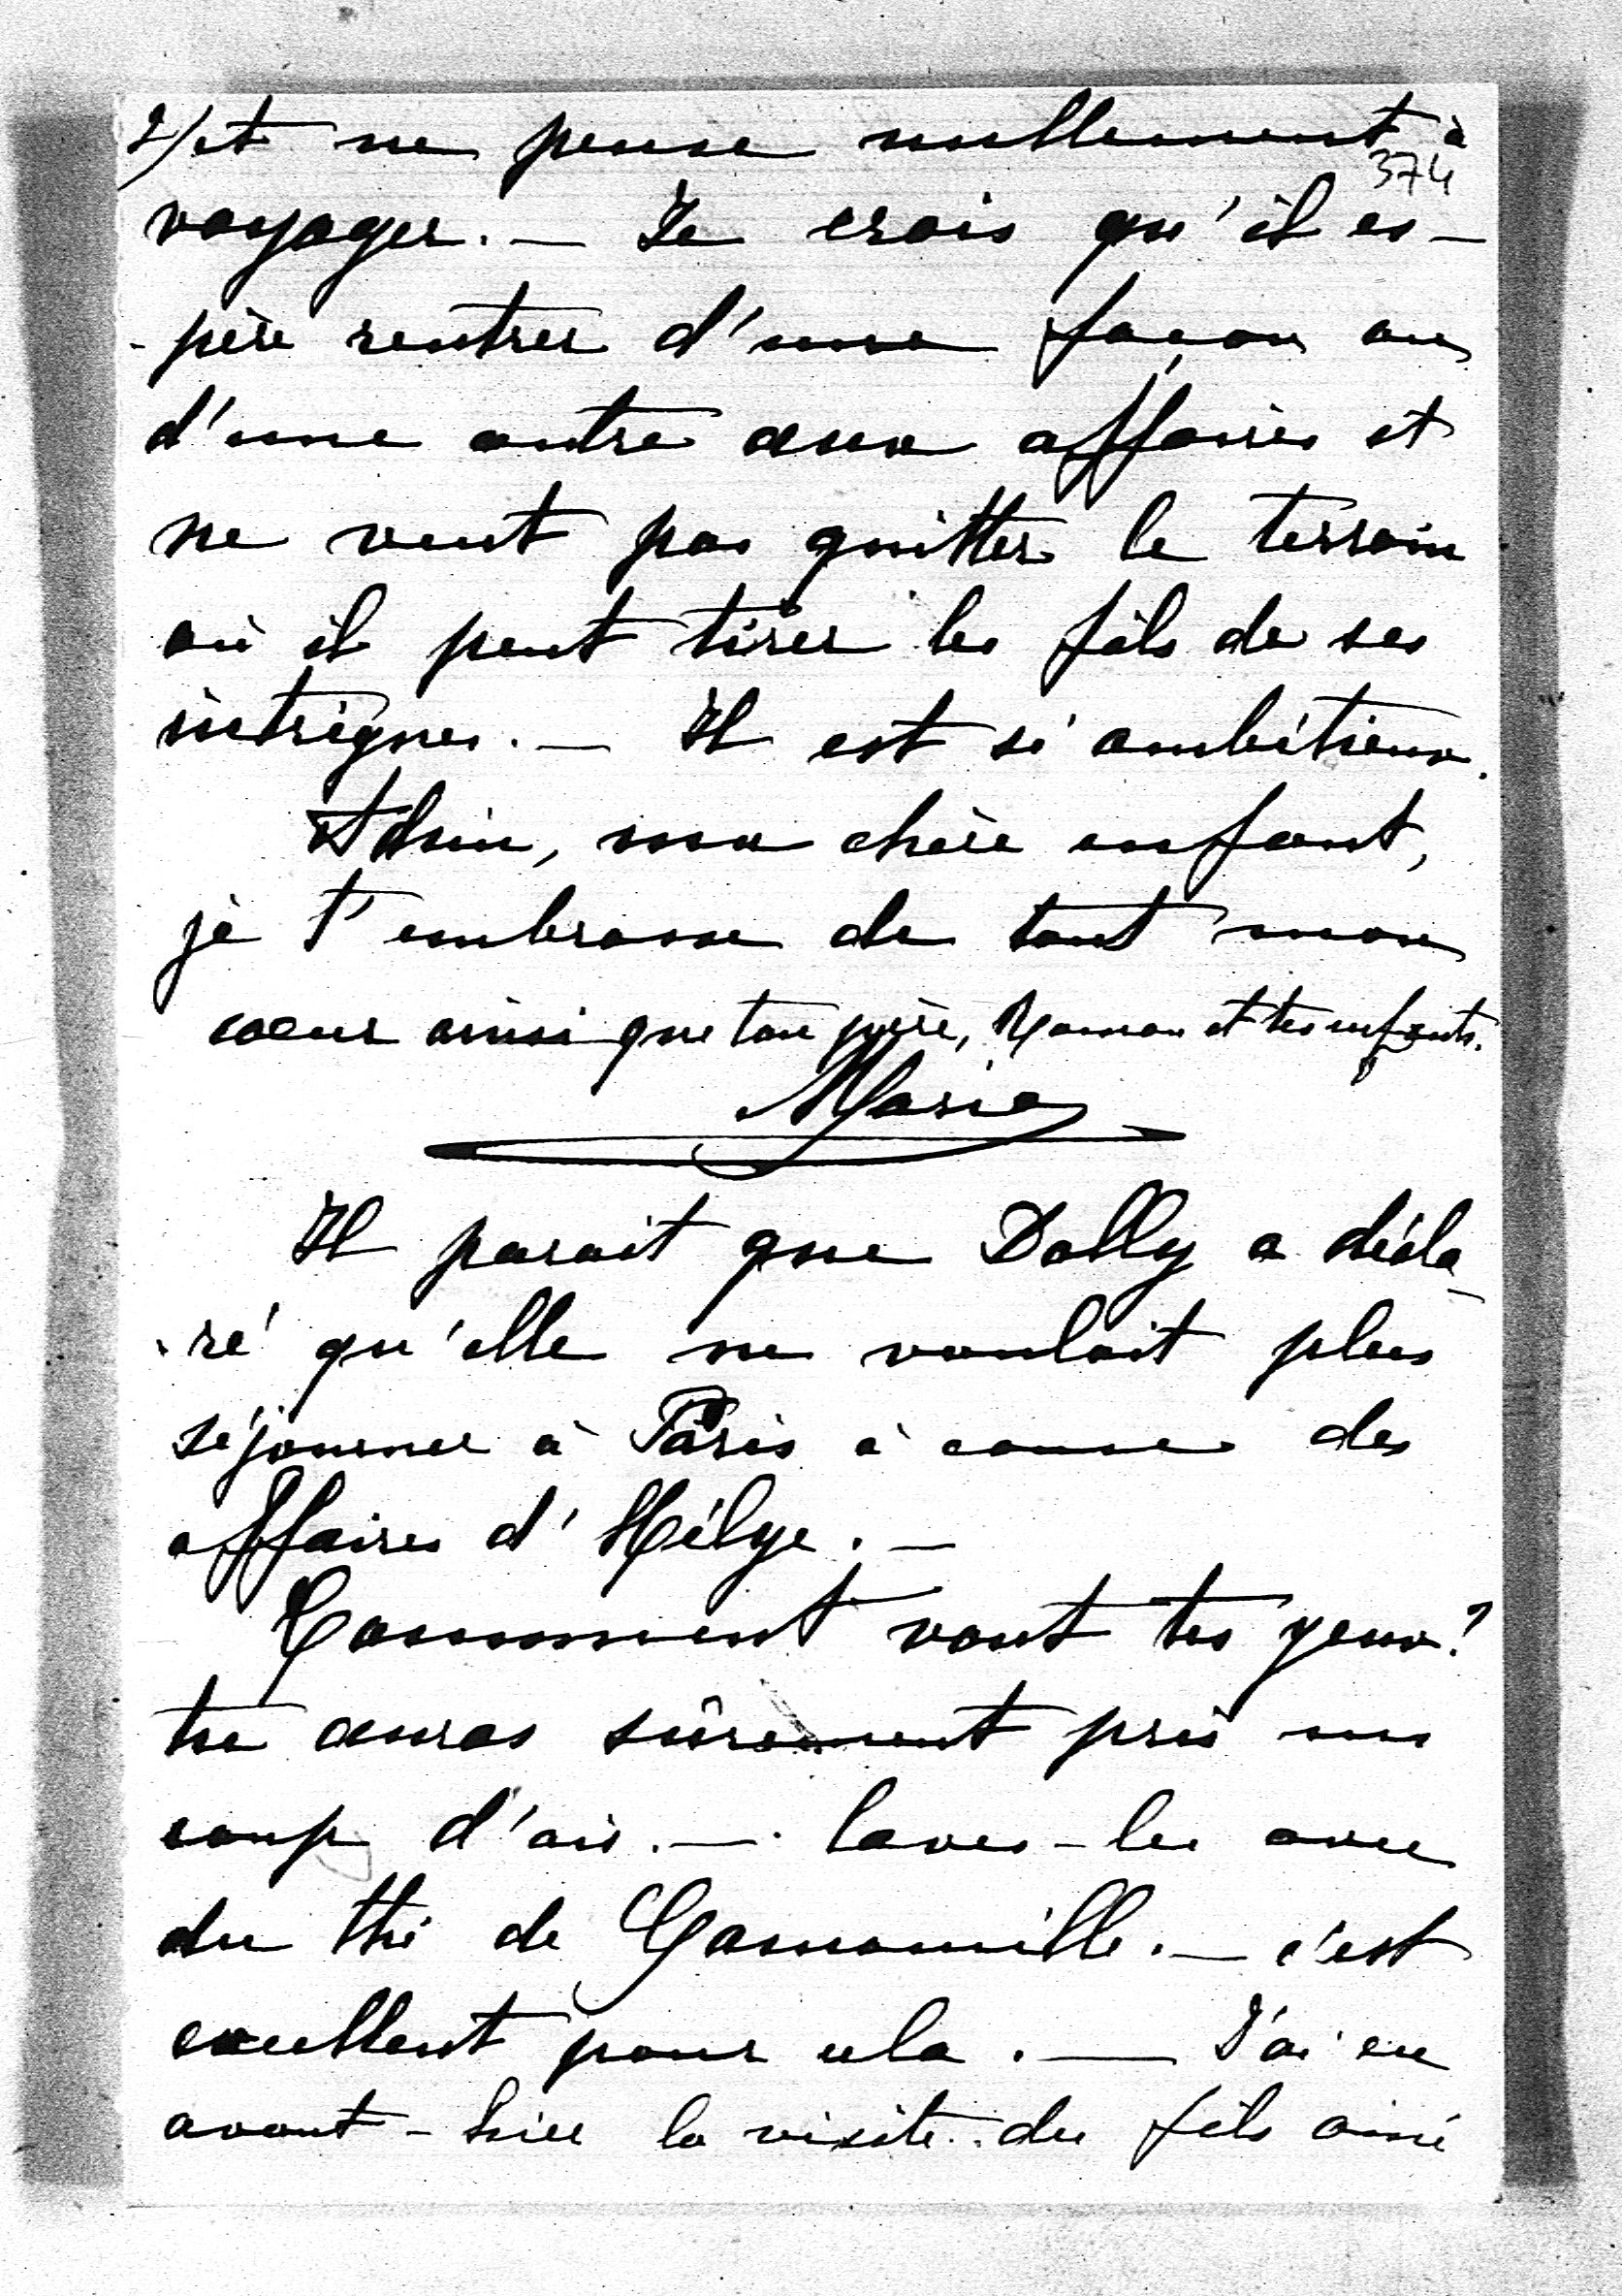 2/et ne pense nullement à
374
voyager. — Je crois qu'il es-
-père rentrer d'une façon ou
d'une autre aux affaires et
ne veut pas quitter le terrain
où il peut tirer les fils de ses
intrigues. — Il est si ambitieux.
Adieu, ma chère enfant,
je t'embrasse de tout mon
coeur ainsi que ton père, Maman et tes enfants.
Marie
Il parait que Dolly a décla-
-ré qu'elle ne voulait plus
séjourner à Paris à cause des
affaires d'Hélye. —
Comment vont tes yeux?
tu auras sûrement pris un
coup d'air. — laves-les avec
du thé de Camomille. — c'est
excellent pour cela. — J'ai eu
avant-hier la visite du fils ainé